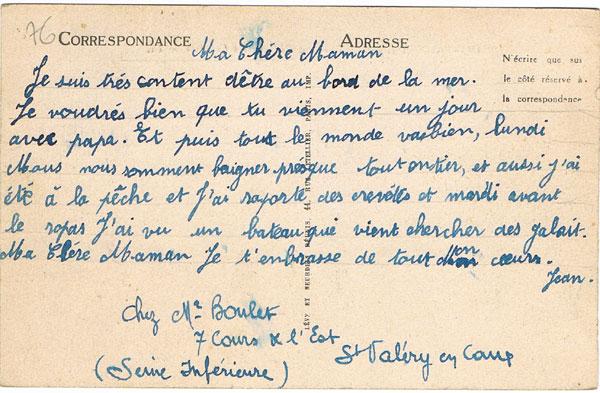 76
CORRESPONDANCE
ADRESSE
N'écrire que sur
le côté réservé à
la correspondance
Ma Chére Maman
Je suis trés content d'être au bord de la mer.
Je voudrés bien que tu viennent un jour
avec papa. Et puis tout le monde va bien, lundi
Nous nous somment baigner presque tout entier, et aussi j'ai
été à la pêche et J'ai raporté des crevettes et mardi avant
le repas J'ai vu un bateau qui vient chercher des galait.
Ma Chére Maman Je t'embrasse de tout mon cœurs.
Jean.
LÉVY ET NEURDEIN RÉUNIS, 44, RUE LETELLIER, PARIS, IMP.
Chez Mr Boulet
7 Cours de l'Est
St Valéry en Caux
(Seine Inférieure)